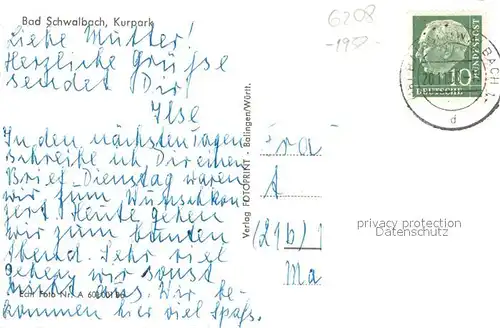 Bad Schwalbach, Kurpark
Liebe Mutter!
Herzliche Grüße
sendet Dir
Ilse
In den nächsten Tagen
schreibe ich Dir einen
Brief. Dienstag waren
wir zum Wunschkon-
zert. Heute gehen
wir zum bunten
Abend. Sehr viel
gehen wir sonst
nicht aus. Wir be-
kommen hier viel Spaß.
Echt Foto Nr. A
Verlag FOTOPRINT - Balingen/Württ.
6208
10
DEUTSCHE
BUNDESPOST
BACH
d
Fra
(21b)
Ma
privacy protection
Datenschutz